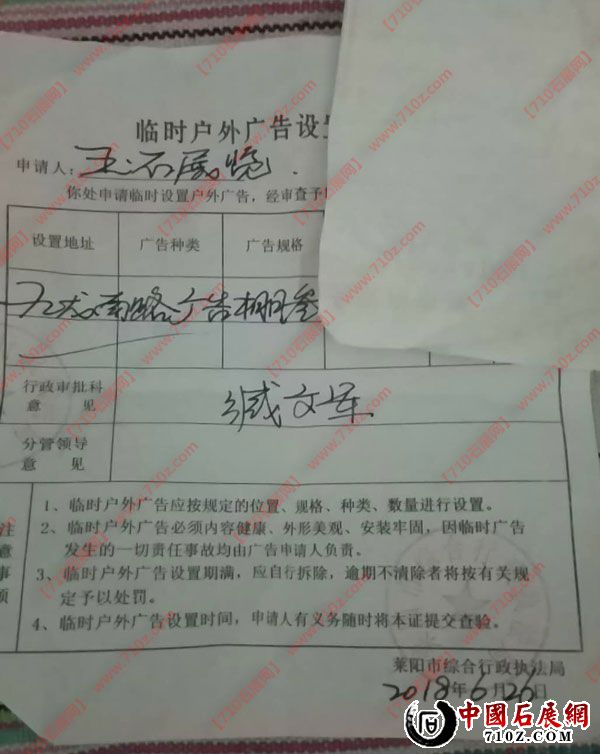 临时户外广告设置
申请人：玉石展览
你处申请临时设置户外广告，经审查予
设置地址 广告种类 广告规格
广告棚
行政审批科
意 见
文军
分管领导
意 见
注意事项
1、临时户外广告应按规定的位置、规格、种类、数量进行设置。
2、临时户外广告必须内容健康、外形美观、安装牢固，因临时广告
发生的一切责任事故均由广告申请人负责。
3、临时户外广告设置期满，应自行拆除，逾期不清除者将按有关规
定予以处罚。
4、临时户外广告设置时间，申请人有义务随时将本证提交查验。
莱阳市综合行政执法局
2018年6月26日
中國石展網
710z.com
【710石展网】www.710z.com